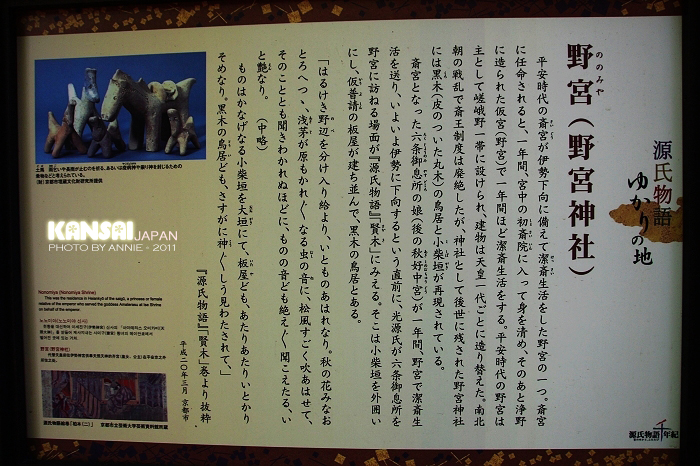 源氏物語
ゆかりの地
野宮（野宮神社）
ののみや
平安時代の斎宮が伊勢下向に備えて潔斎生活をした野宮の一つ。斎宮
に任命されると、一年間、宮中の初斎院に入って身を清め、そのあと浄野
に造られた仮宮（野宮）で一年間ほど潔斎生活をする。平安時代の野宮は
主として嵯峨野一帯に設けられ、建物は天皇一代ごとに造り替えた。南北
朝の戦乱で斎王制度は廃絶したが、神社として後世に残された野宮神社
には黒木（皮のついた丸木）の鳥居と小柴垣が再現されている。
斎宮となった六条御息所の娘（後の秋好中宮）が一年間、野宮で潔斎生
活を送り、いよいよ伊勢に下向するという直前に、光源氏が六条御息所を
野宮に訪ねる場面が『源氏物語』「賢木」にみえる。そこは小柴垣を外囲い
にし、仮普請の板屋が建ち並んで、黒木の鳥居とある。
「はるけき野辺を分け入り給より、いとものあはれなり。秋の花みなお
とろへつゝ、浅茅が原もかれ〲なる虫の音に、松風すごく吹あはせて、
そのこととも聞きわかれぬほどに、ものの音ども絶え〲聞こえたる、い
と艶なり。（中略）
ものはかなげなる小柴垣を大垣にて、板屋ども、あたりあたりいとかり
そめなり。黒木の鳥居ども、さすがに神〲しう見わたされて、」
『源氏物語』「賢木」巻より抜粋
平成二〇年三月 京都市
KANSAI JAPAN
PHOTO BY ANNIE · 2011
Nonomiya (Nonomiya Shrine)
This was the residence in Heiankyō of the saigū, a princess or female
relative of the emperor who served the goddess Amaterasu at Ise Shrine
on behalf of the emperor.
野宮（野宮神社）
源氏物語千年紀